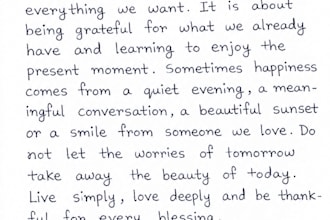 everything we want. It is about
being grateful for what we already
have and learning to enjoy the
present moment. Sometimes happiness
comes from a quiet evening, a mean-
ingful conversation, a beautiful sunset
or a smile from someone we love. Do
not let the worries of tomorrow
take away the beauty of today.
Live simply, love deeply and be thank-
ful for every blessing.